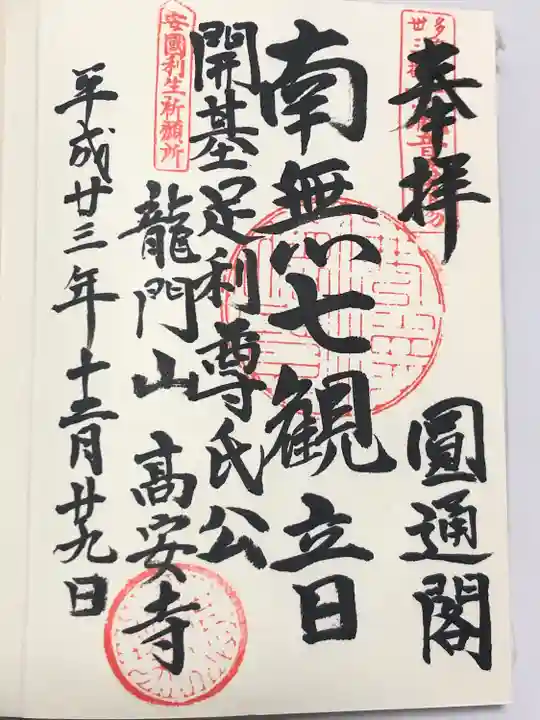 奉拝 圓通閣
南無七観立日
開基足利尊氏公
龍門山 高安寺
平成廿三年十二月廿九日
安國利生祈願所